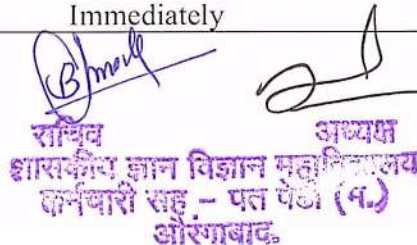 Immediately
सचिव अध्यक्ष
शासकीय ज्ञान विज्ञान महाविद्यालय
कर्मचारी सह – पत पेढी (म.)
औरंगाबाद.